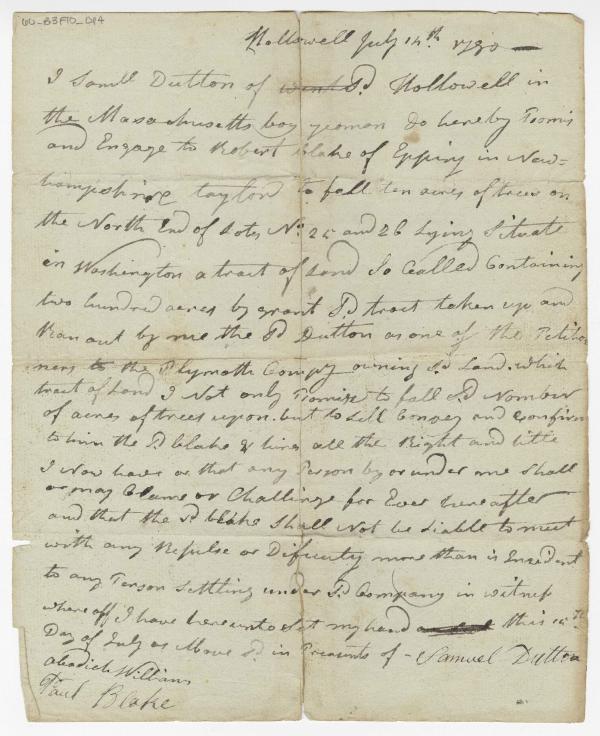 60_B3F10_014
Hollowell July 14th 1780
I Samll Dutton of Sd. Hollowell in
the Massachusetts bay yeoman do hereby Promis
and Engage to Robert Blake of Epping in New=
hampshire taylor to fall ten acres of trees on
the North End of Lotes No. 25 and 26 Lying Situate
in Washington a tract of Land So Called Containing
two hundred acres by grant Sd. tract taken up and
Ran out by me the Sd Dutton as one of the Petitio
ners to the Plymoth Compy owning Sd Land. which
tract of Land I Not only Promise to fall Sd Nomber
of acres of trees upon. but to Sell Convey and Confirm
to him the Sd Blake & hires all the Right and title
I Now have or that any Person by or under me Shall
or may Clame or Challinge for Ever hereafter
and that the Sd blake Shall Not be Liable to meet
with any Repulse or Dificulty more than is Insedent
to any Person Settling under Sd. Company in witness
where off I have hereunto Set my hand this 14th
Day of July as Above Sd. in Presents of - Samuel Dutton
Williams
Paul Blake